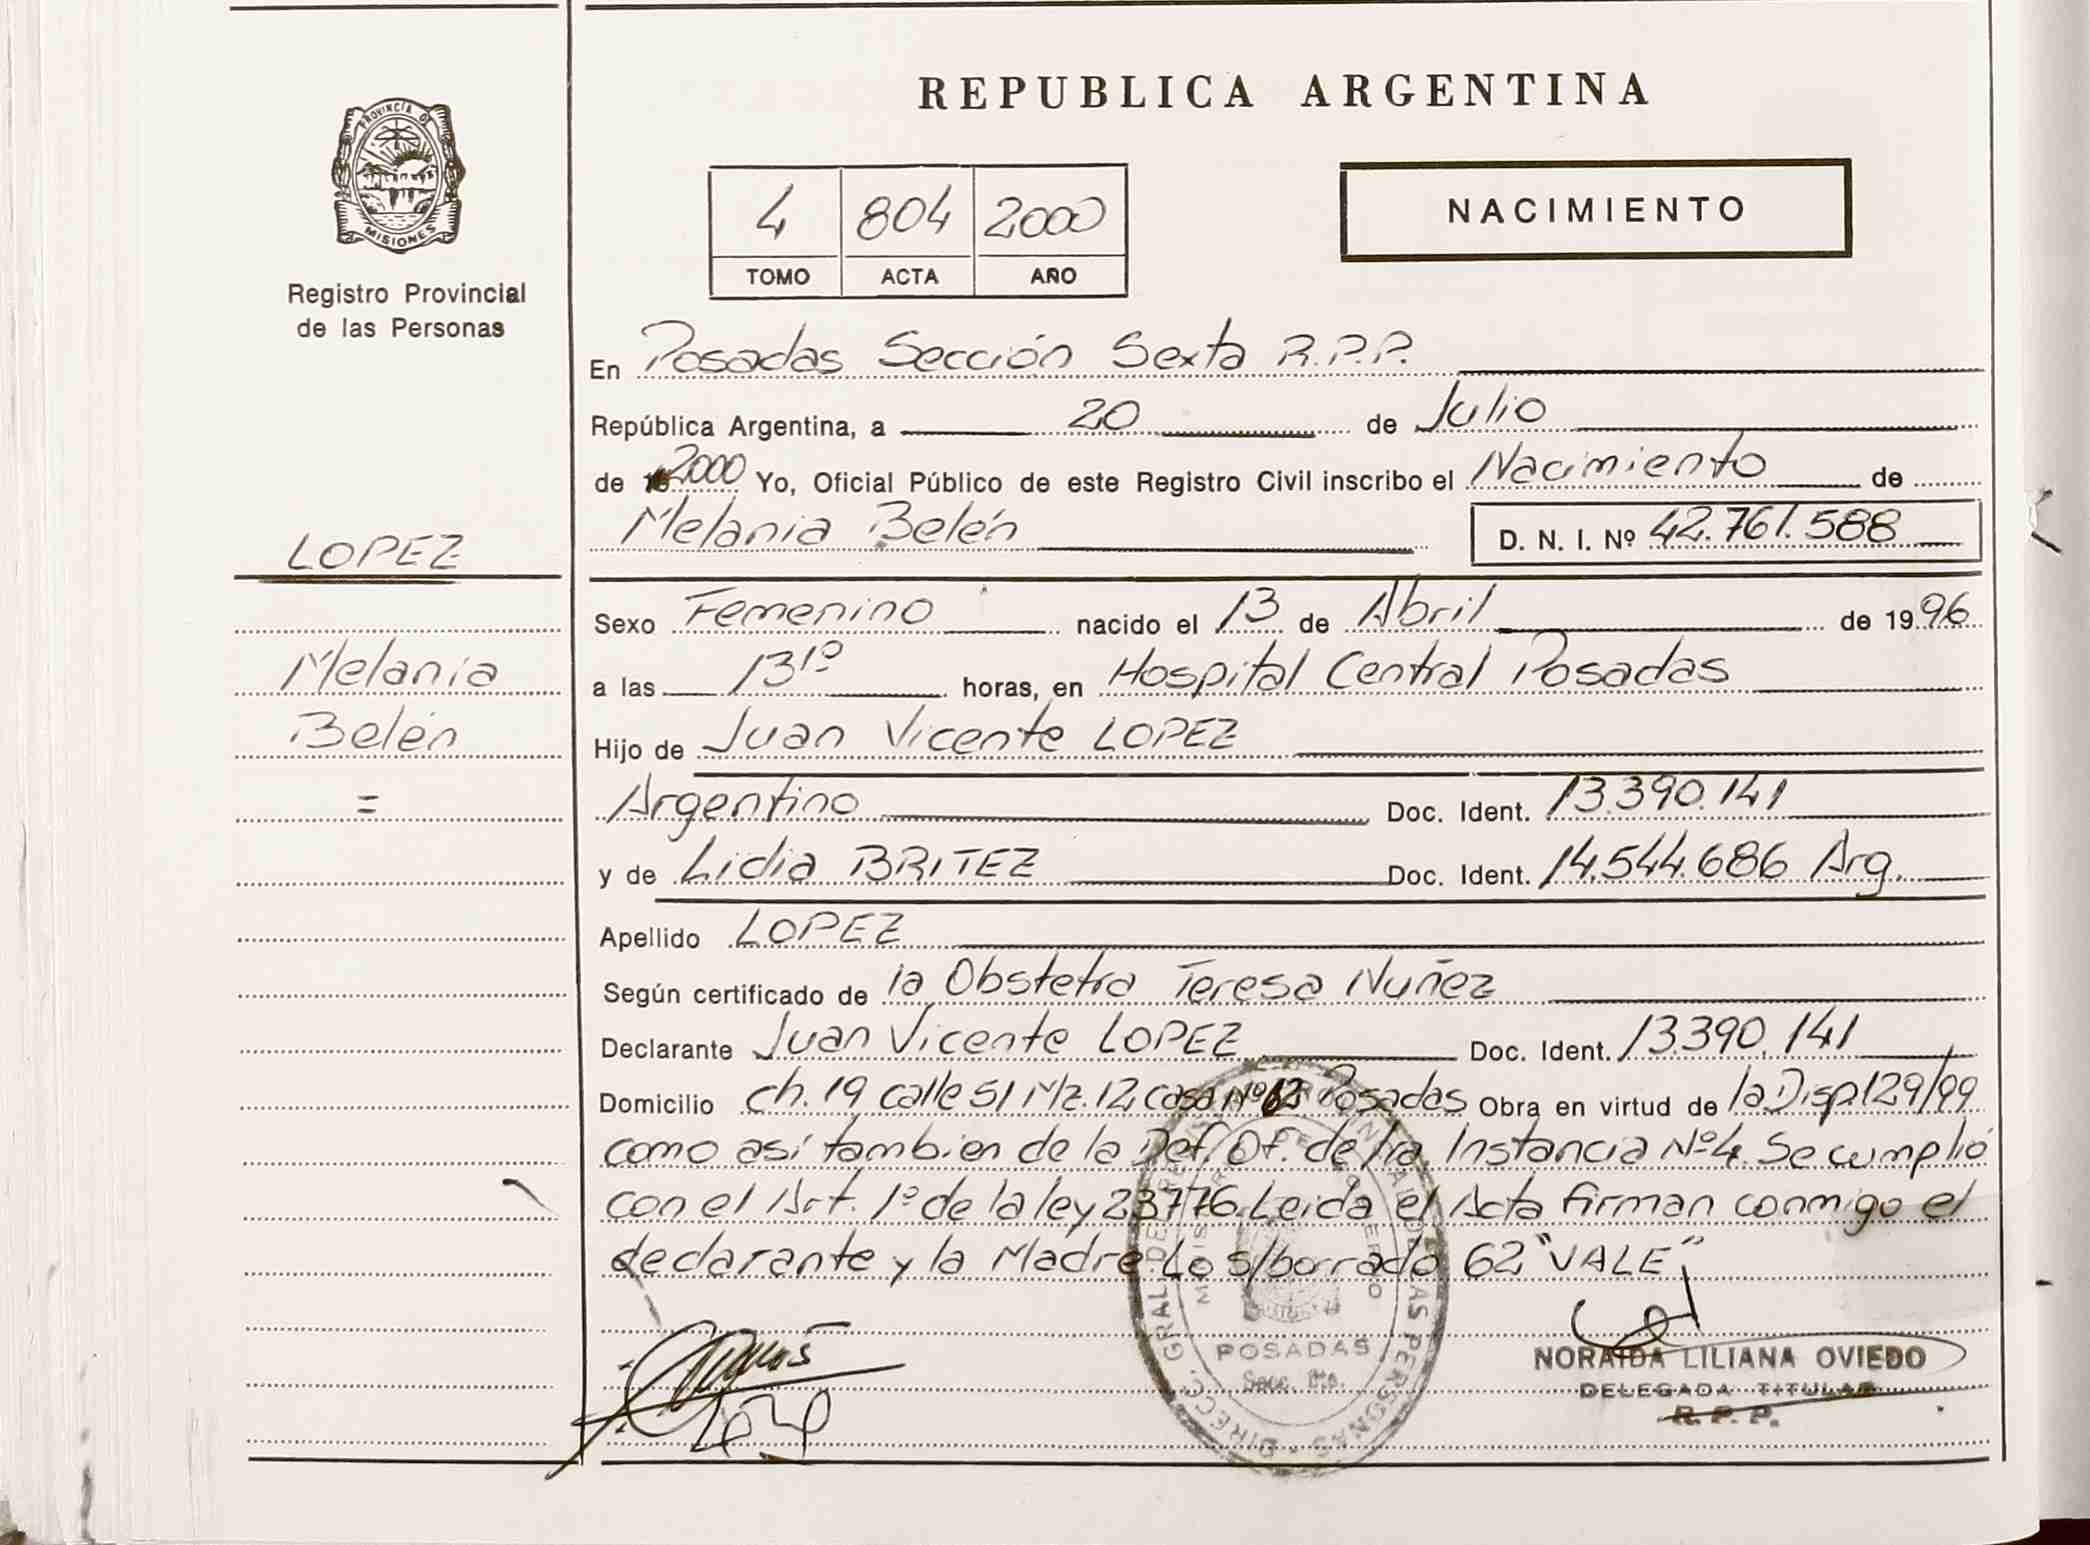 PROVINCIA DE
MISIONES
Registro Provincial
de las Personas
LOPEZ
Melania
Belén
=
REPUBLICA ARGENTINA
4 804 2000
TOMO ACTA AÑO
NACIMIENTO
En Posadas Sección Sexta R.P.P.
República Argentina, a 20 de Julio
de 2000 Yo, Oficial Público de este Registro Civil inscribo el Nacimiento de
Melania Belén D. N. I. Nº 42.761.588
Sexo Femenino nacido el 13 de Abril de 1996
a las 13¹⁰ horas, en Hospital Central Posadas
Hijo de Juan Vicente LOPEZ
Argentino Doc. Ident. 13.390.141
y de Lidia BRITEZ Doc. Ident. 14.544.686 Arg.
Apellido LOPEZ
Según certificado de la Obstetra Teresa Nuñez
Declarante Juan Vicente LOPEZ Doc. Ident. 13.390.141
Domicilio Ch. 19 calle 51 Mz. 12, casa Nº 62 Posadas Obra en virtud de la Disp. 129/99
como asi tambien de la Def. Of. de 1ra Instancia Nº 4. Se cumplió
con el Art. 1º de la ley 23776. Leida el Acta firman conmigo el
declarante y la Madre. Lo s/borrado 62 "VALE"
POSADAS
NORAIDA LILIANA OVIEDO
DELEGADA TITULAR
R. P. P.